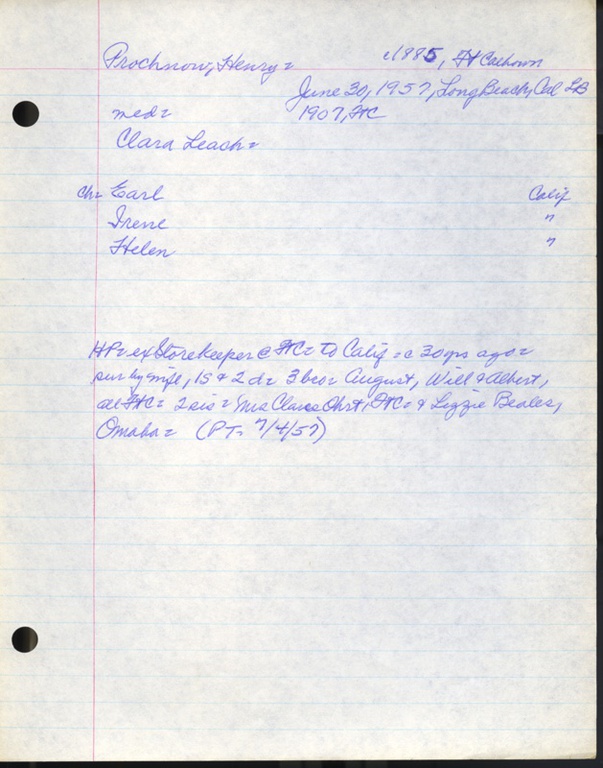 Prochnow, Henry = c1885, Ft Calhoun
June 30, 1957, Long Beach, Cal LB
med = 1907, FtC
Clara Leach =
ch = Earl Calif
Irene "
Helen "
HP = ex Storekeeper @ FtC = to Calif = c 30 yrs ago =
sur by wife, 1S & 2 d = 3 bro = August, Will & Albert,
all FtC = 2 sis = Mrs Claus Ohrt, FtC = & Lizzie Beales,
Omaha = (PT = 7/4/57)